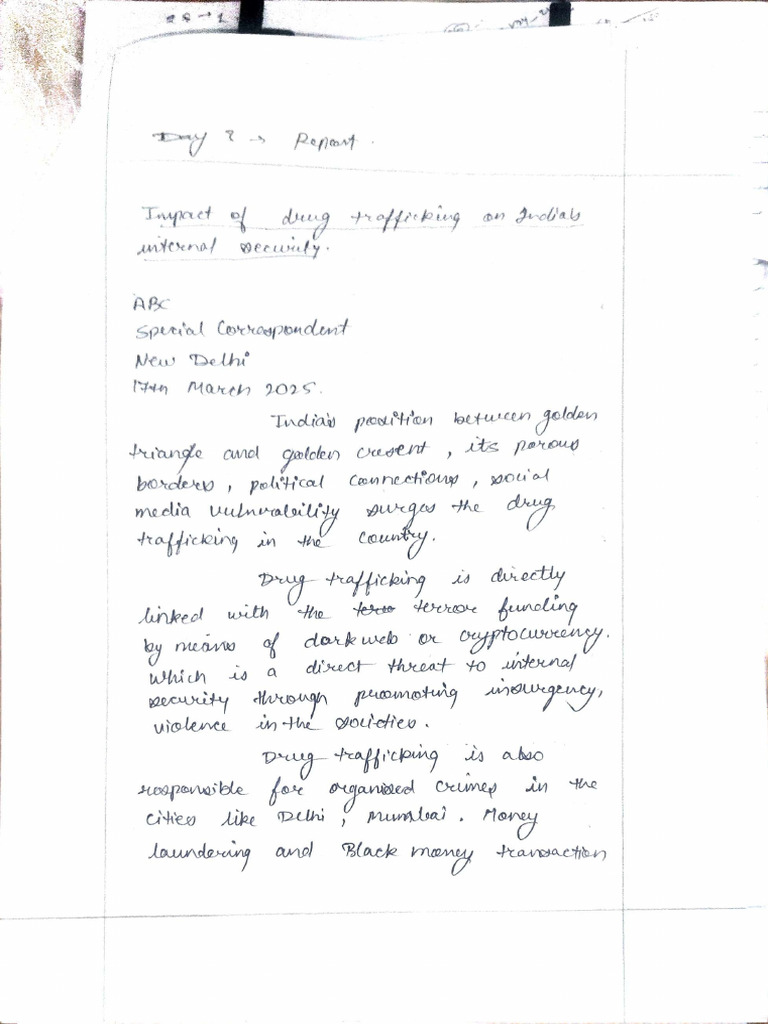 Day 2 → Report.
Impact of drug trafficking on India's
internal security.
ABC
Special Correspondent
New Delhi
17th March 2025.
India's position between golden
triangle and golden cresent, its porous
borders, political connections, social
media vulnerability surges the drug
trafficking in the country.
Drug trafficking is directly
linked with the terror funding
by means of dark web or cryptocurrency.
which is a direct threat to internal
security through promoting insurgency,
violence in the societies.
Drug trafficking is also
responsible for organised crimes in the
cities like Delhi, Mumbai. Money
laundering and Black money transaction